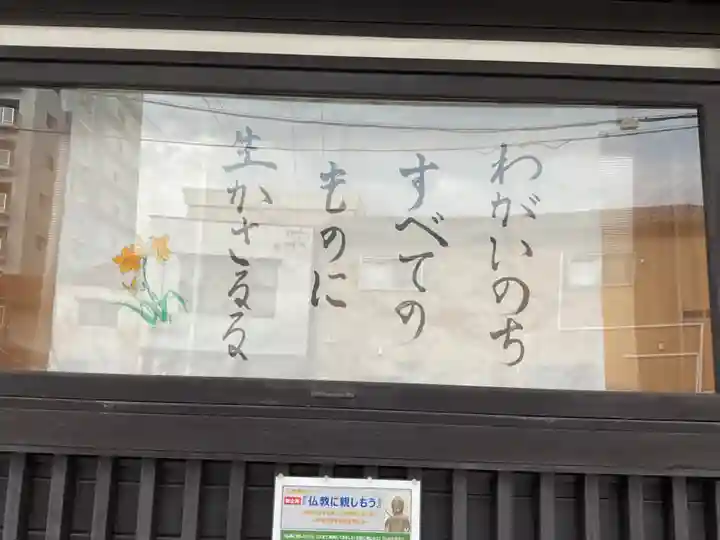 わがいのち
すべての
ものに
生かさるる
『仏教に親しもう』